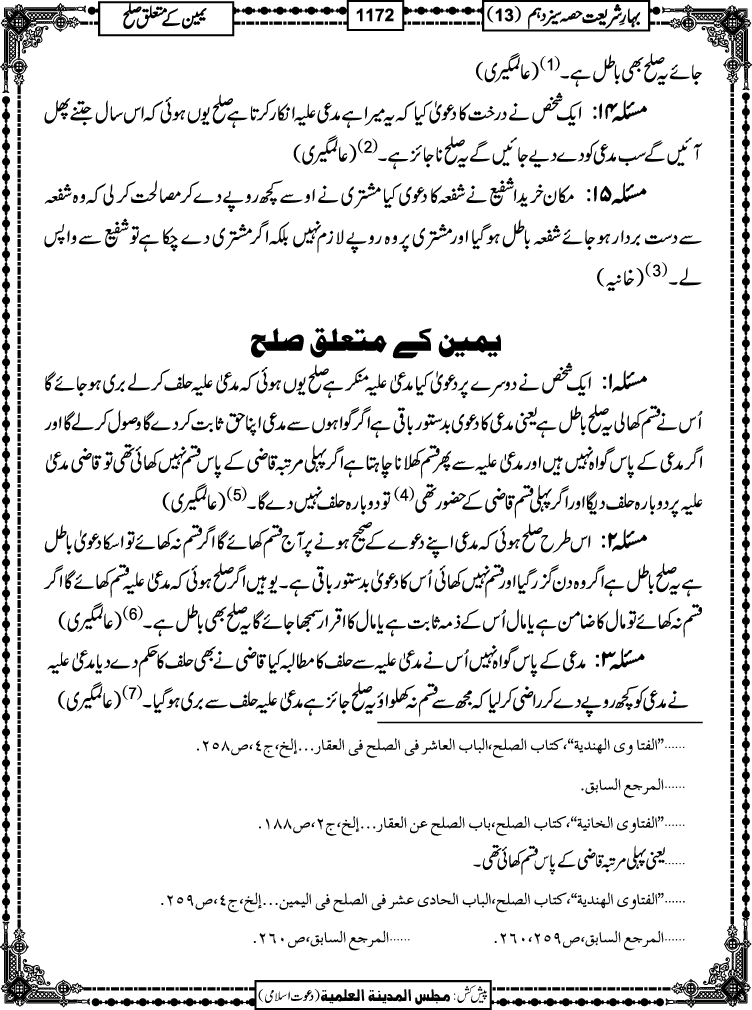 بہارِشریعت حصہ سیزدہم (13)
1172
یمین کے متعلق صلح
جائے یہ صلح بھی باطل ہے۔(1) (عالمگیری)
مسئلہ ۱۴: ایک شخص نے درخت کا دعویٰ کیا کہ یہ میرا ہے مدعی علیہ انکار کرتا ہے صلح یوں ہوئی کہ اس سال جتنے پھل
آئیں گے سب مدعی کو دے دیے جائیں گے یہ صلح ناجائز ہے۔(2) (عالمگیری)
مسئلہ ۱۵: مکان خریدا شفیع نے شفعہ کا دعوی کیا مشتری نے اوسے کچھ روپے دے کر مصالحت کرلی کہ وہ شفعہ
سے دست بردار ہوجائے شفعہ باطل ہوگیا اور مشتری پر وہ روپے لازم نہیں بلکہ اگر مشتری دے چکا ہے تو شفیع سے واپس
لے۔(3) (خانیہ)
یمین کے متعلق صلح
مسئلہ ۱: ایک شخص نے دوسرے پر دعویٰ کیا مدعیٰ علیہ منکر ہے صلح یوں ہوئی کہ مدعیٰ علیہ حلف کرلے بری ہوجائے گا
اُس نے قسم کھالی یہ صلح باطل ہے یعنی مدعی کا دعوی بدستور باقی ہے اگر گواہوں سے مدعی اپنا حق ثابت کردے گا وصول کرلے گا اور
اگر مدعی کے پاس گواہ نہیں ہیں اور مدعیٰ علیہ سے پھر قسم کھلانا چاہتا ہے اگر پہلی مرتبہ قاضی کے پاس قسم نہیں کھائی تھی تو قاضی مدعیٰ
علیہ پر دوبارہ حلف دیگا اور اگر پہلی قسم قاضی کے حضور تھی(4) تو دوبارہ حلف نہیں دے گا۔(5) (عالمگیری)
مسئلہ ۲: اس طرح صلح ہوئی کہ مدعی اپنے دعوے کے صحیح ہونے پر آج قسم کھائے گا اگر قسم نہ کھائے تو اسکا دعویٰ باطل
ہے یہ صلح باطل ہے اگر وہ دن گزر گیا اور قسم نہیں کھائی اُس کا دعویٰ بدستور باقی ہے۔ یوہیں اگر صلح ہوئی کہ مدعیٰ علیہ قسم کھائے گا اگر
قسم نہ کھائے تو مال کا ضامن ہے یا مال اُس کے ذمہ ثابت ہے یا مال کا اقرار سمجھا جائے گا یہ صلح بھی باطل ہے۔(6) (عالمگیری)
مسئلہ ۳: مدعی کے پاس گواہ نہیں اُس نے مدعیٰ علیہ سے حلف کا مطالبہ کیا قاضی نے بھی حلف کا حکم دے دیا مدعیٰ علیہ
نے مدعی کو کچھ روپے دے کر راضی کرلیا کہ مجھ سے قسم نہ کھلواؤ یہ صلح جائز ہے مدعیٰ علیہ حلف سے بری ہوگیا۔(7) (عالمگیری)
......”الفتاوی الھندیة“، کتاب الصلح، الباب العاشر فی الصلح فی العقار...إلخ، ج٤، ص٢٥٨.
......المرجع السابق.
......”الفتاوی الخانیة“، کتاب الصلح، باب الصلح عن العقار...إلخ، ج٢، ص١٨٨.
......یعنی پہلی مرتبہ قاضی کے پاس قسم کھائی تھی۔
......”الفتاوی الھندیة“، کتاب الصلح، الباب الحادی عشر فی الصلح فی الیمین...إلخ، ج٤، ص٢٥٩.
......المرجع السابق، ص٢٥٩، ٢٦٠. ......المرجع السابق، ص٢٦٠.
پیش کش: مجلس المدینة العلمیة (دعوت اسلامی)